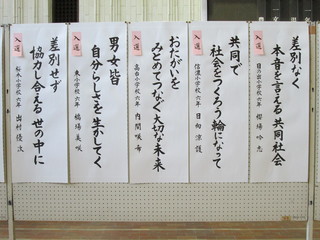 入選
差別なく
本音を言える 共同社会
日の出小学校六年 櫻場 吟志
入選
共同で
社会をつくろう 輪になって
信濃小学校六年 日向 涼雅
入選
おたがいを
みとめてつなぐ 大切な未来
高森小学校六年 内間 咲希
入選
男女皆
自分らしさを 生かしてく
東小学校六年 橋場 美咲
入選
差別せず
協力し合える 世の中に
裕木小学校六年 出村 優次